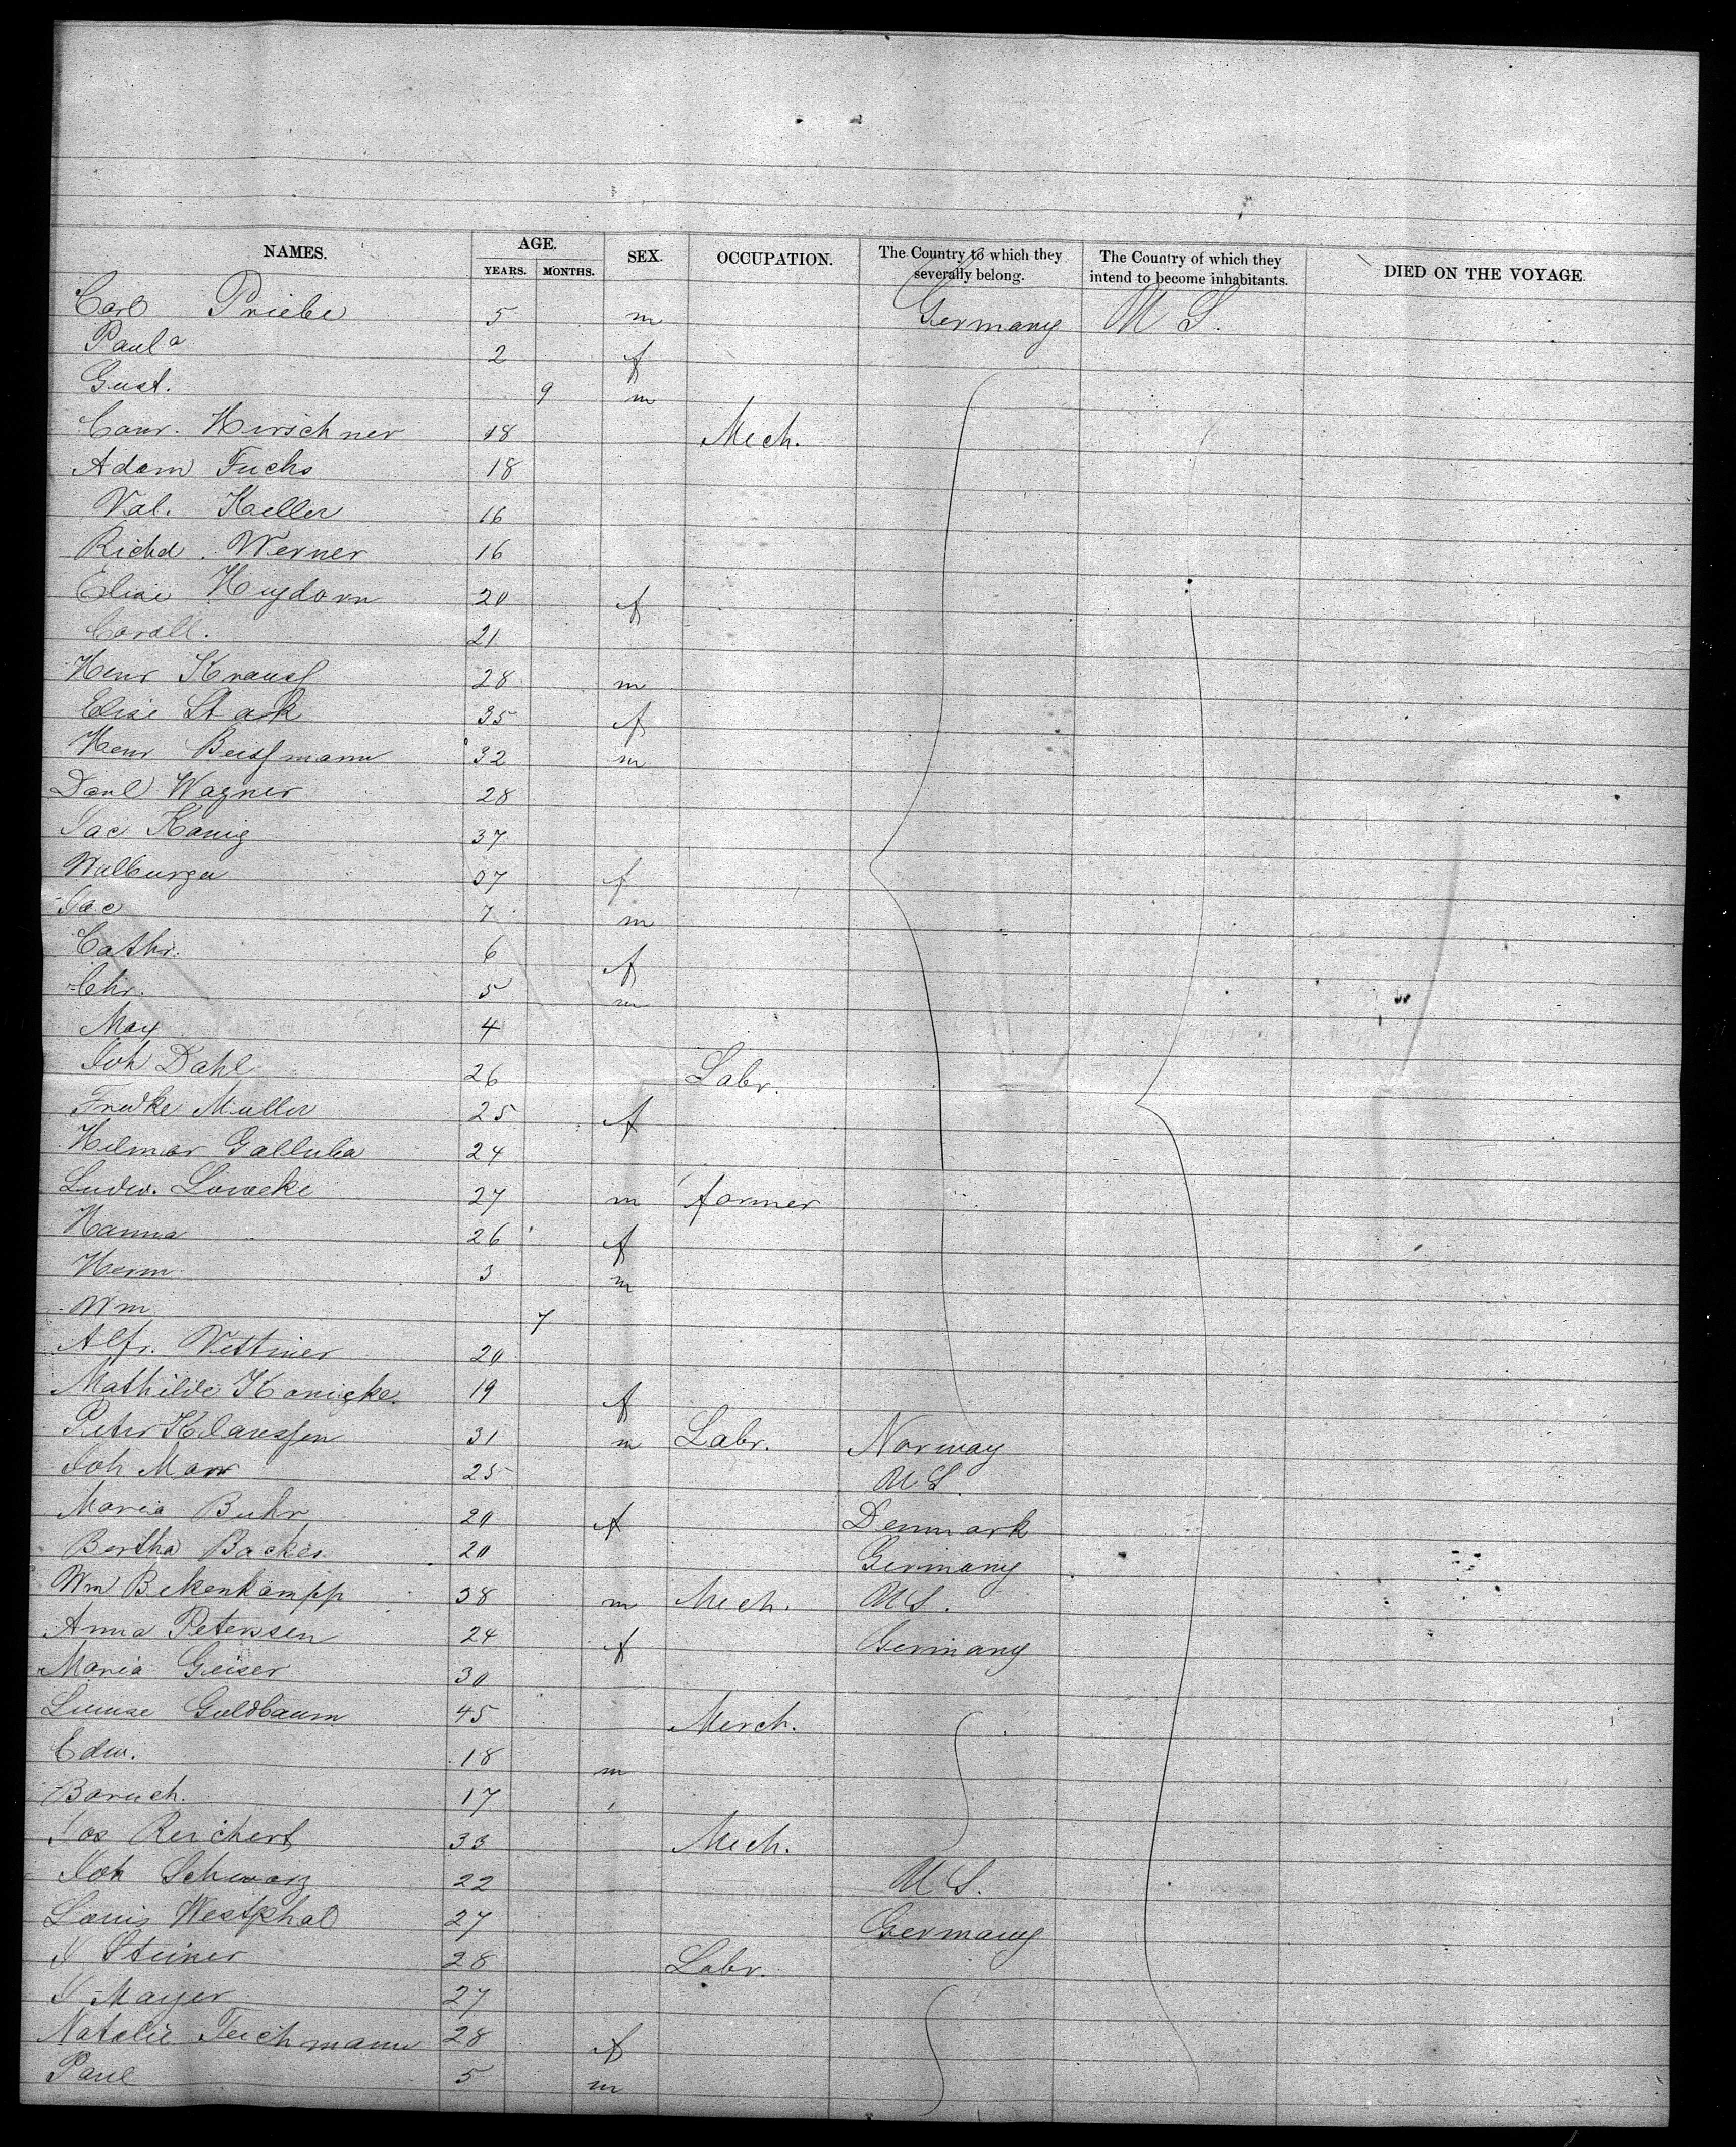 NAMES. AGE. SEX. OCCUPATION. The Country to which they severally belong. The Country of which they intend to become inhabitants. DIED ON THE VOYAGE
YEARS. MONTHS.
Carl Priebe 5 m Germany U S.
Paula 2 f
Gust. 9 m
Conr. Hirschner 18 Mech.
Adam Fuchs 18
Val. Keller 16
Richd. Werner 16
Elise Heydorn 20 f
Caroll. 21
Henr Krauss 28 m
Elise Stark 35 f
Henr Beissmann 32 m
Danl Wagner 28
Jac Konig 37
Walburga 37 f
Jac 7 m
Cathr. 6 f
Chr. 5 m
Max 4
Joh Dahl 26 Labr.
Fredke Muller 25 f
Hilmar Gallulia 24
Ludw. Lowecke 27 m farmer
Hanna 26 f
Herm 3 m
Wm 7
Alfr. Wittiner 20
Mathilde Konigke 19 f
Peter Klaussen 31 m Labr. Norway
Joh Marr 25 U S.
Maria Buhr 20 f Denmark
Bertha Backer 20 Germany
Wm Bekenkampp 38 m Mech. U S.
Anna Peterssen 24 f Germany
Maria Geiser 30
Luuise Goldbaum 45 Merch.
Edw. 18 m
Baruch. 17
Jos Reichert 33 Mech.
Joh Schwarz 22 U S.
Louis Westphal 27 Germany
J Steiner 28 Labr.
J Mayer 27
Natalie Teichmann 28 f
Paul 5 m